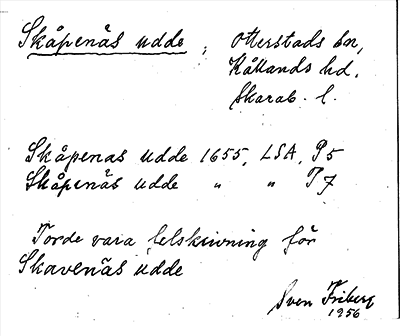 Skåpenäs udde, Otterstads sn,
Kållands hd.
Skarab. l.
Skåpenas udde 1655, LSA, P5
Skåpenäs udde " " P7
Torde vara felskrivning för
Skavenäs udde
Sven Friberg
1956